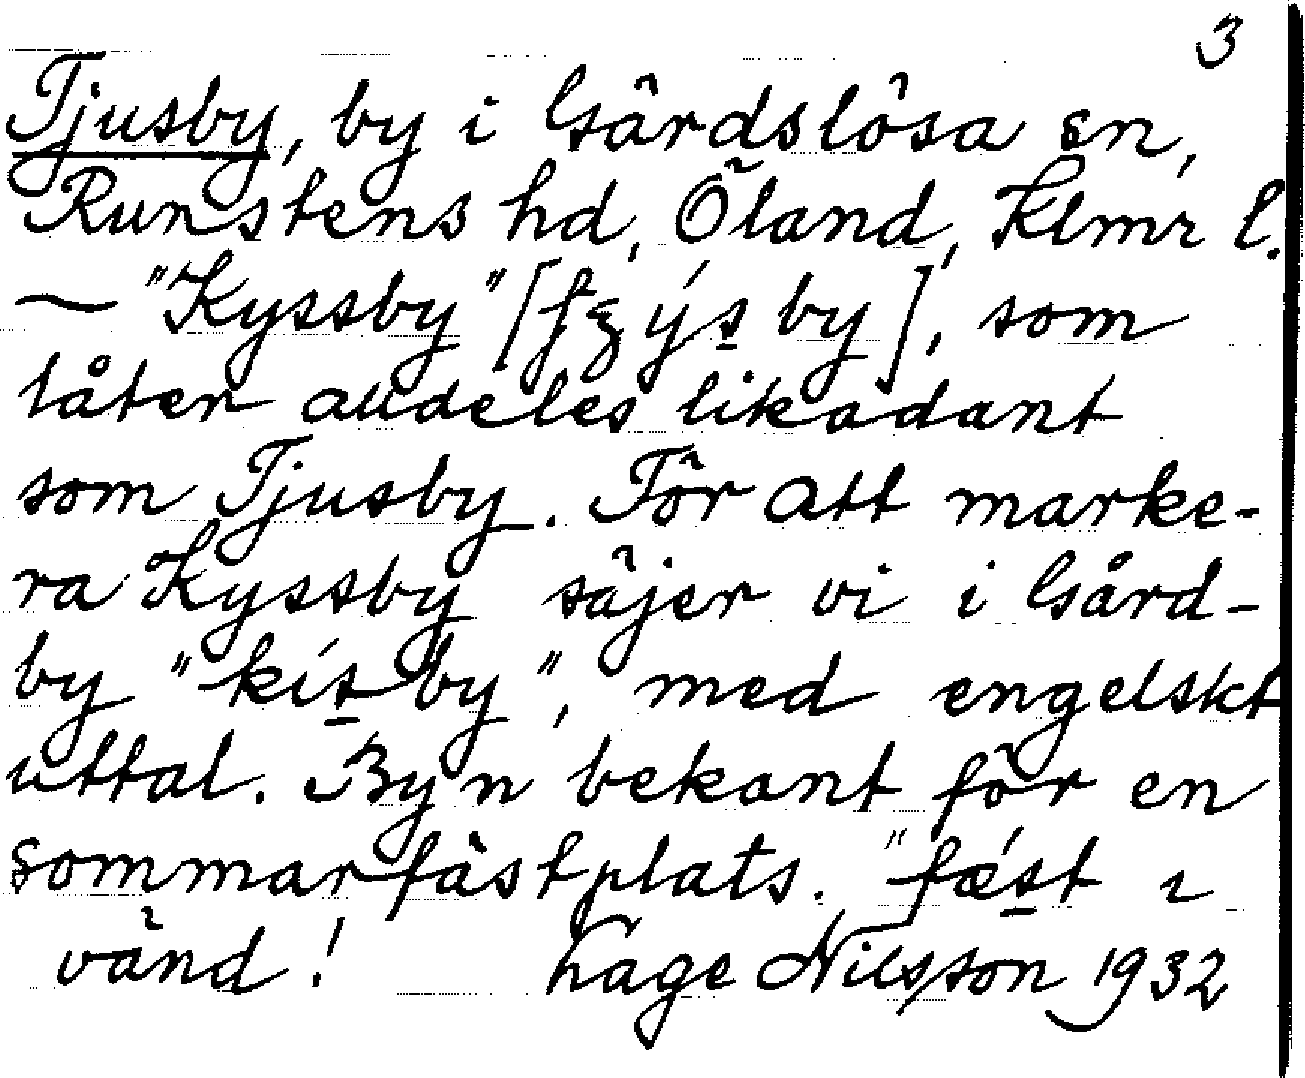 3
Tjusby, by i Gärdslösa sn,
Runstens hd, Öland, Klmr l.
— "Kyssby" [ ýs̲by], som
låter alldeles likadant
som Tjusby. För att marke-
ra Kyssby säjer vi i Gård-
by "kís̲by", med engelskt
uttal. Byn bekant för en
sommarfästplats. "fǽs̲t ı
vänd! Hage Nilsson 1932